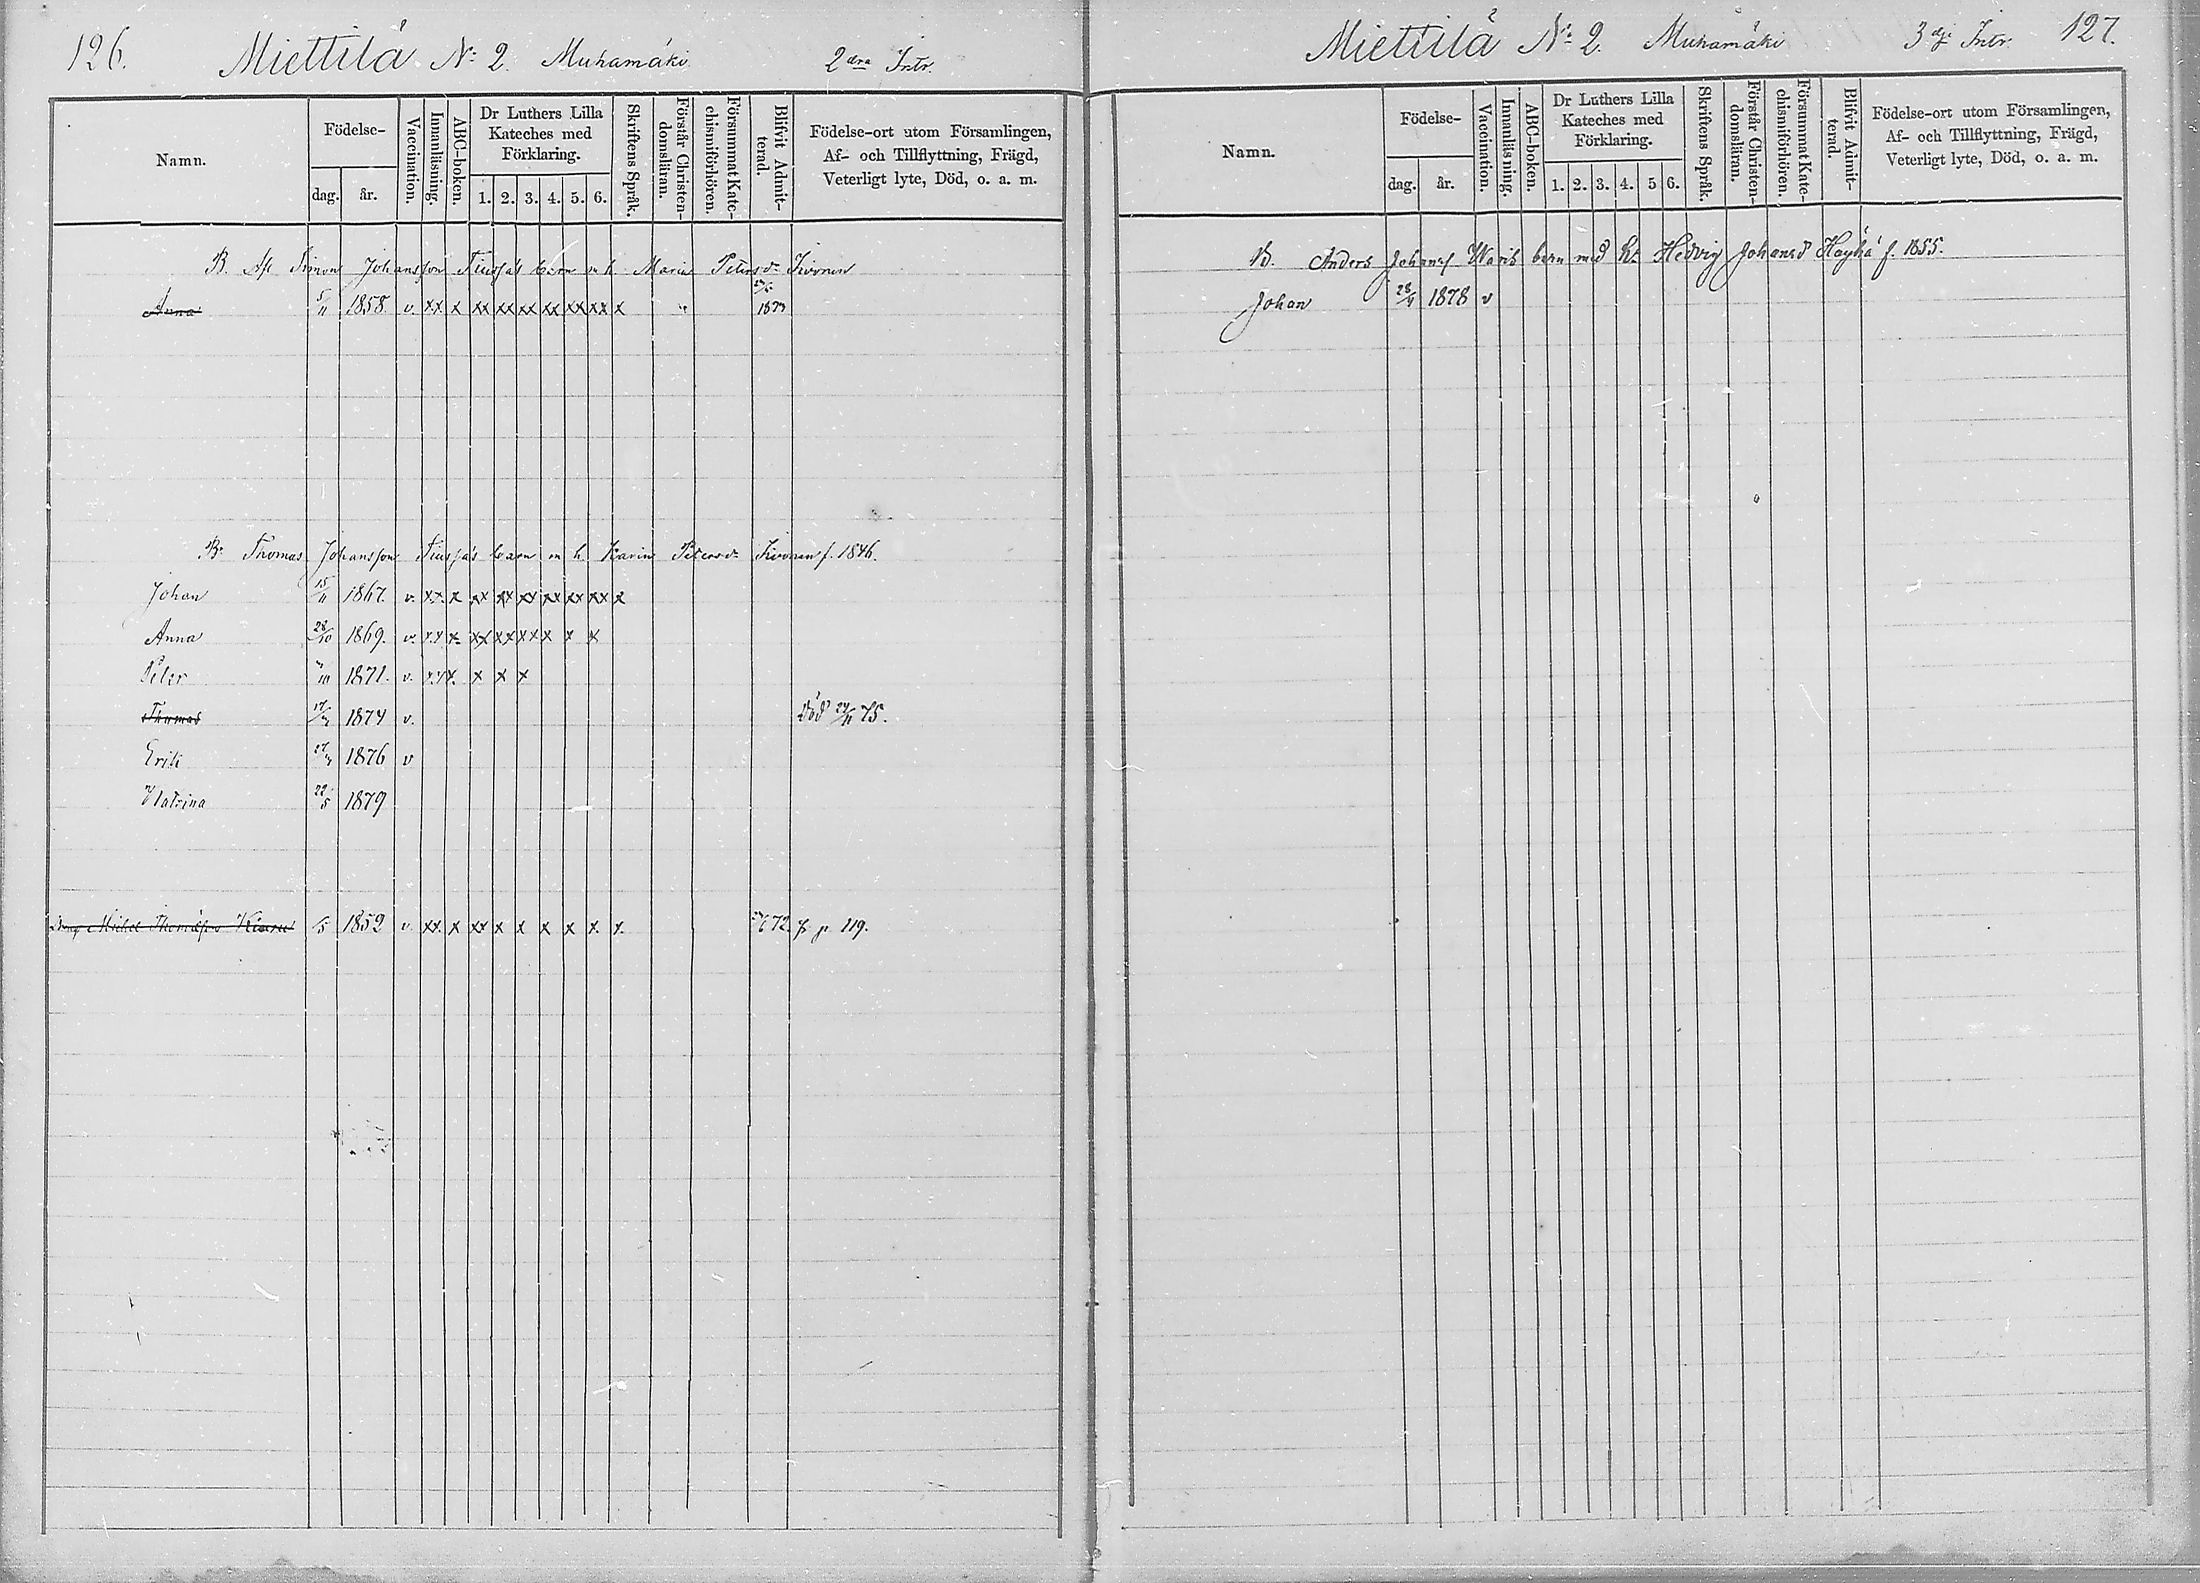 126. Miettilä No 2. Muhamäki 2dra Intr.
Namn.
Födelse-
dag. år.
Vaccination.
Innanläsning.
ABC-boken.
Dr Luthers Lilla Kateches med Förklaring.
1. 2. 3. 4. 5. 6.
Skriftens Språk.
Förstår Christendomsläran.
Försummat Katechismiförhören.
Blifvit Admitterad.
Födelse-ort utom Församlingen,
Af- och Tillflyttning, Frägd,
Veterligt lyte, Död, o. a. m.
B. Simon Johansson barn m h. Maria Petersdr
Anna 5/11 1858 v. xx x xx xx xx xx xx xx x "
Br Thomas Johansson barn m h. Karin Petersdr f. 1846.
Johan 15/11 1867. v. xx. x xx xx xx xx xx xx x
Anna 28/10 1869. v. xx x xx xx xx x x x
Peter 1871. v. xx x. x x x
Thomas 1874 v. Död 75.
Erik 1876 v
Katrina 22/5 1879
Michel Thomasson 1852 v. xx. x xx x x x x x. x. 72. p 119.
Miettilä No 2. Muhamäki 3dje Intr. 127.
Namn.
Födelse-
dag. år.
Vaccination.
Innanläsning.
ABC-boken.
Dr Luthers Lilla Kateches med Förklaring.
1. 2. 3. 4. 5 6.
Skriftens Språk.
Förstår Christendomsläran.
Försummat Katechismiförhören.
Blifvit Admitterad.
Födelse-ort utom Församlingen,
Af- och Tillflyttning, Frägd,
Veterligt lyte, Död, o. a. m.
B. Anders Johans Waris barn med h. Hedvig Johansd Häyhä f. 1855.
Johan 1878 v